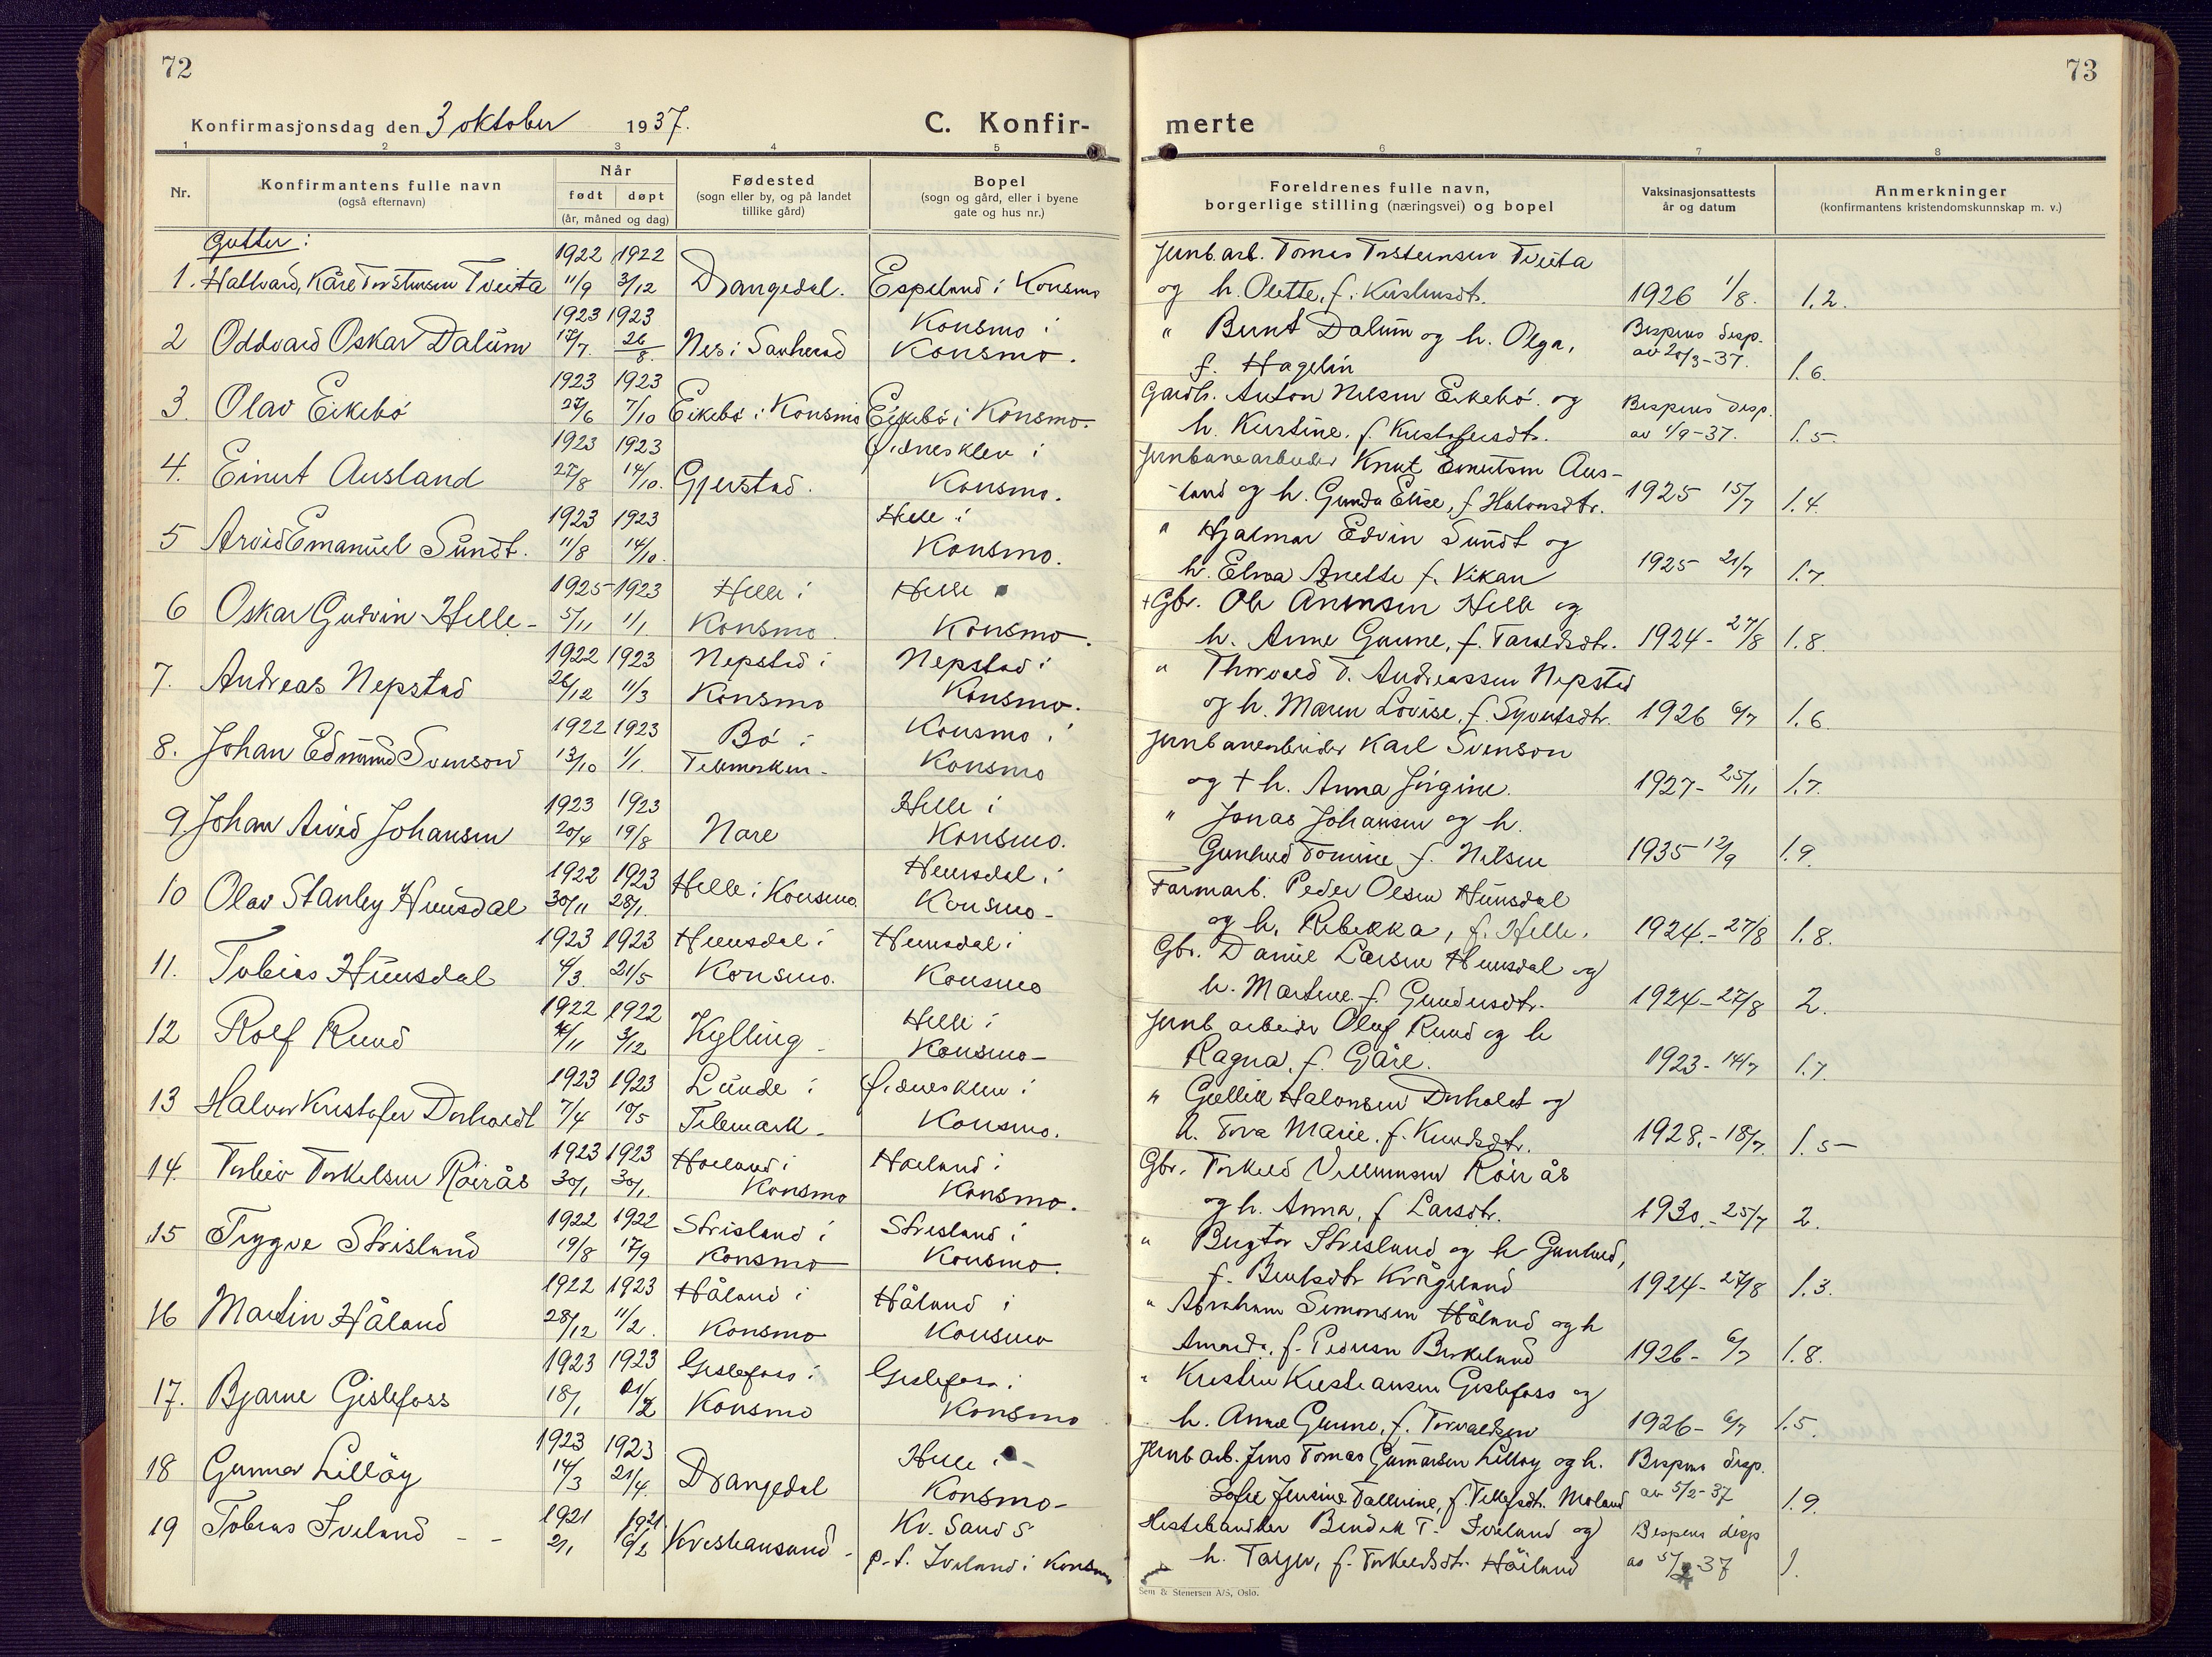 72
73
Konfirmasjonsdag den 3 oktober 1937.
C. Konfir-
merte
1 2 3 4 5 6 7 8
Nr.
Konfirmantens fulle navn
(også efternavn)
Når
født døpt
(år, måned og dag)
Fødested
(sogn eller by, og på landet
tillike gård)
Bopel
(sogn og gård, eller i byene
gate og hus nr.)
Foreldrenes fulle navn,
borgerlige stilling (næringsvei) og bopel
Vaksinasjonsattests
år og datum
Anmerkninger
(konfirmantens kristendomskunnskap m. v.)
Gutter:
1922 1922 Jernb.arb. Tomas Torsteinsen Tveita
1. Hallvard, Kåre Torsteinsen Tveita 11/9 3/12 Drangedal. Espeland i Konsmo og h. Olette, f. 1926 1/8. 1.2.
1923 1923 Konsmo i " Bernt Dalum og h. Olga, Bispens disp.
2 Oddvard Oskar Dalum 17/7. 26/8. Nes i Sauherad Konsmo. f. Hagelin av 20/3-37. 1.6.
1923 1923 Gardb. Anton Nilsen Eikebø og Bispens disp.
3. Olav Eikebø 27/6 7/10 Eikebø i Konsmo Eikebø i Konsmo. h. Kirstine, f. Kristofersdtr. av 1/9-37. 1.5.
1923 1923 Øidnesklev i Jernbanearbeider Knut Einertsen Aus-
4. Einert Ausland 27/8 14/10. Gjerstad. Konsmo. land og h. Gunda Elise, f. Halvorsdtr. 1925 15/7 1.4.
1923 1923 Helle i " Hjalmar Edvin Sundt og
5 Arvid Emanuel Sundt. 11/8 14/10. Konsmo. h. Elna Anette f. Vikan 1925 21/7 1.7.
1925 1923 Helle i Helle +Gbr. Ole Anensen Helle og
6 Oskar Gudvin Helle - 5/11 1/1 Konsmo. Konsmo. h. Anne Gunne, f. Taraldsdtr. 1924- 27/8 1.8.
1922 1923 Nepstad i Nepstad i " Thorvald T. Andreassen Nepstad
7. Andreas Nepstad 26/12 11/3 Konsmo Konsmo. og h. Maren Lovise, f. Syvertsdtr. 1926 6/7 1.6.
1922 1923 Bø i Konsmo i Jernbanearbeider Karl Svenson
8. Johan Edmund Svenson 13/10 1/1. Telemarken- Konsmo og + h. Anna Jørgine. 1927- 25/11 1.7.
1923 1923 Helle i " Jonas Johansen og h.
9. Johan Arvid Johansen 20/4 19/8 Nare Konsmo. Gunhild Tomine f. Nilsen 1935 12/9 1.9.
1922 1923 Helle i Konsmo. Hunsdal i Farmarb. Peder Olsen Hunsdal
10 Olav Stanley Hunsdal 30/11 28/1. Konsmo- og h. Rebekka, f. Helle. 1924.-27/8 1.8.
1923 1923 Hunsdal i Hunsdal i Gbr. Daniel Larsen Hunsdal og
11. Tobias Hunsdal 4/3. 21/5 Konsmo. Konsmo h. Martine f. Gundersdtr. 1924-27/8 2.
1922 1922 Helle i Jernb arbeider Oluf Ruud og h
12 Rolf Ruud 4/11 3/12 Kylling- Konsmo- Ragna, f. Gåre. 1923- 14/7 1.7.
1923 1923 Lunde i Øidnesklev i " Gullik Halvorsen Dorholdt og
13 Halvor Kristofer Dorholdt 7/4 10/5 Telemark- Konsmo. h. Tora Marie. f. Knudsdtr. 1928.-18/7. 1.5
1923 1923 Høiland i Høiland i Gbr. Torkild Villumsen Røirås
14. Torleiv Torkelsen Røirås 30/1 30/1. Konsmo Konsmo. og h. Anna, f. Larsdtr. 1930.-25/7 2.
1922 1922 Strisland i Strisland i " Bergtor Strisland og h Gunhild,
15 Trygve Strisland 19/8 17/9 Konsmo Konsmo. f. Bentsdtr Krågeland 1924-27/8 1.3.
1922 1923 Håland i Håland i " Abraham Simonsen Håland og h
16 Martin Håland 28/12 11/2. Konsmo Konsmo Amanda, f. Pedersen Birkeland 1926- 6/7 1.8.
1923 1923 Gislefoss i Gislefoss i " Kristen Kristiansen Gislefoss og
17. Bjarne Gislefoss 18/1 21/2 Konsmo Konsmo h. Anne Gunne, f. Torvaldsen 1926- 6/7 1.5.
1923 1923 Helle i Jernb arb. Jens Tomas Gunnarsen Lilløy og h. Bispens disp.
18 Gunnar Lilløy 14/3 21/4. Drangedal Konsmo- Sofie Jensine Tallerine, f. Tellefsdtr. Moland av 5/2-37 1.9.
1921 1921 Kv. Sand S Hestehandler Bendik T. Iveland og Bispens disp
19 Tobias Iveland - - 2/1 16/2 Kristiansand- p.t. Iveland i Konsmo h. Tarjer, f. Torkeldsdtr. Høiland av 5/2-37 1.
Sem & Stenersen A/S, Oslo.